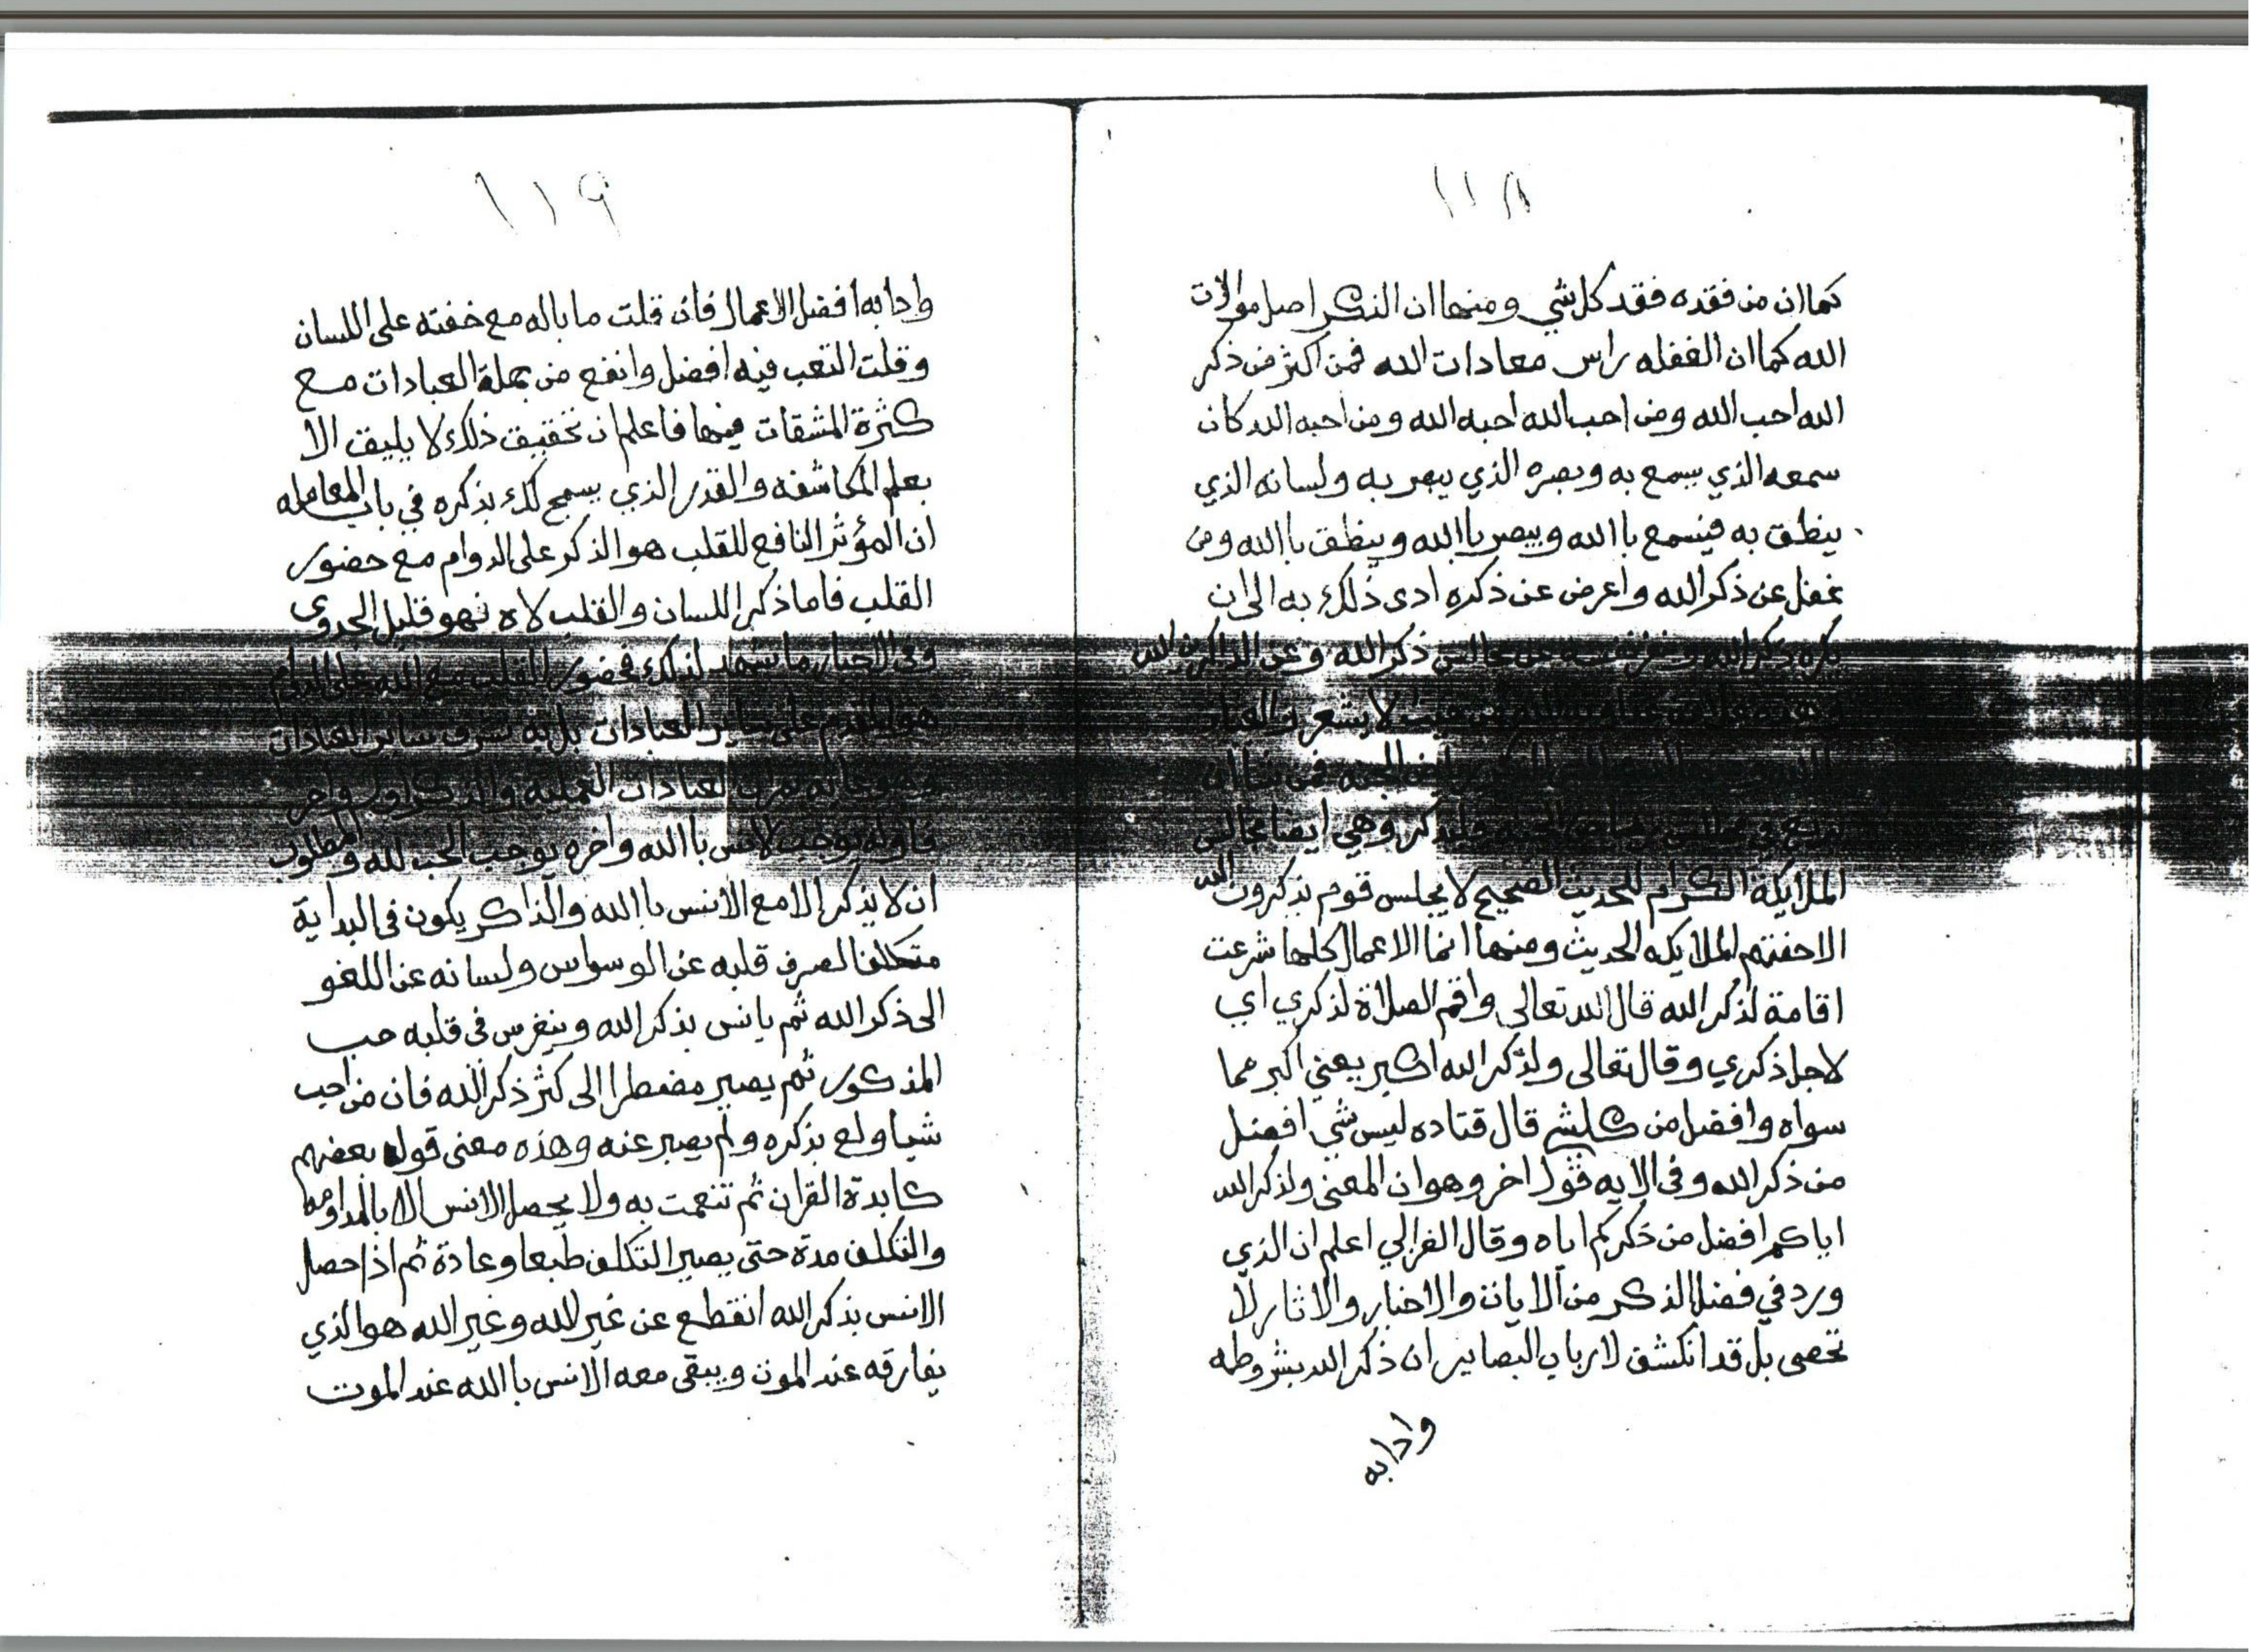 ١١٨
كما ان من فقده فقد كل شي ومنها ان الذكر اصل موالات
الله كما ان الغفله راس معادات الله فمن اكثر من ذكر
الله احب الله ومن احب الله احبه الله ومن احبه الله كان
سمعه الذي يسمع به وبصره الذي يبصر به ولسانه الذي
ينطق به فيسمع باالله ويبصر باالله وينطق باالله ومن
غفل عن ذكر الله واعرض عن ذكره ادى ذلك به الى ان
يكره ذكر الله مجالس ذكر الله وعن الذاكرين لله
حيث لا يشعر والعياذ
رياض الجنه فمن شاء ان
وهي ايضا مجالس
الملايكة الكرام للحديث الصحيح لا يجلس قوم يذكرون الله
الا حفتهم الملايكه الحديث ومنها انما الاعمال كلها شرعت
اقامة لذكر الله قال الله تعالى واقم الصلاة لذكري اي
لاجل ذكري وقال تعالى ولذكر الله اكبر يعني اكبر مما
سواه وافضل من كلشي قال قتاده ليس شي افضل
من ذكر الله وفي الايه قول اخر وهو ان المعنى ولذكر الله
اياكم افضل من ذكركم اياه وقال الغزالي اعلم ان الذي
ورد في فضل الذكر من الايات والاخبار والاثار لا
تحصى بل قد انكشف لارباب البصاير ان ذكر الله بشروطه
وادابه
١١٩
وادابه افضل الاعمال فان قلت ما باله مع خفته على اللسان
وقلت التعب فيه افضل وانفع من جملة العبادات مع
كثرة المشقات فيها فاعلم ان تحقيق ذلك لا يليق الا
بعلم المكاشفه والقدر الذي يسمح لك بذكره في باب المعامله
ان المؤثر النافع للقلب هو الذكر على الدوام مع حضور
القلب فاما ذكر اللسان والقلب لاه فهو قليل الجدوى
وفي الاخبار ما يشهد لذلك فحضور القلب مع الله على الدوام
هو المقدم على ساير العبادات بل به تشرف ساير العبادات
وهو غاية ثمرت العبادات العملية وللذكر اول واخر
فاوله يوجب الانس باالله واخره يوجب الحب لله والمطلوب
ان لا يذكر الا مع الانس باالله والذاكر يكون في البداية
متكلفا لصرف قلبه عن الوسواس ولسانه عن اللغو
الى ذكر الله ثم يانس بذكر الله وينغرس في قلبه حب
المذكور ثم يصير مضطرا الى كثر ذكر الله فان من احب
شيا ولع بذكره ولم يصبر عنه وهذه معنى قول بعضهم
كابدة القران ثم تنعمت به ولا يحصل الانس الا بالمداومه
والتكلف مدة حتى يصير التكلف طبعا وعادة ثم اذا حصل
الانس بذكر الله انقطع عن غير الله وغير الله هو الذي
يفارقه عند الموت ويبقى معه الانس باالله عند الموت